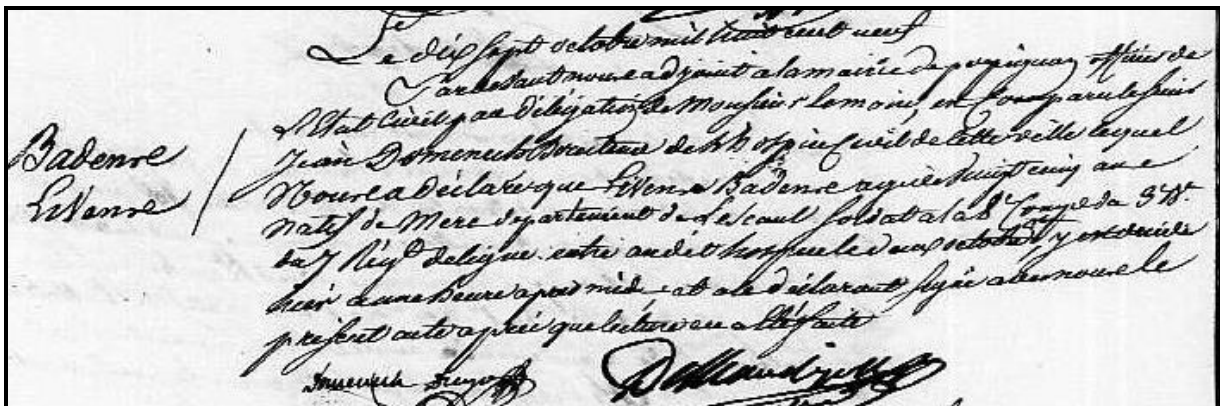 Le dix sept octobre mil huit cent neuf
Pardevant nous adjoint a la mairie de perpignan officier de
l'Etat Civil par délégation de Monsieur le maire, en Comparu le sieur
Badenne
Livenne
Jean Domenech Directeur de l'hospice Civil de cette ville lequel
Nous a déclaré que Livenne Badenne agé de vingt cinq ans
natif de Mere departement de Lescaut soldat a la Comp.e du 3 B.n
du 7 Reg.t de ligne entré au dit hospice le deux octobre y est décédé
hier a une heure apres midi et a le déclarant signé avec nous le
présent acte après que lecture en a été faite
Domenech